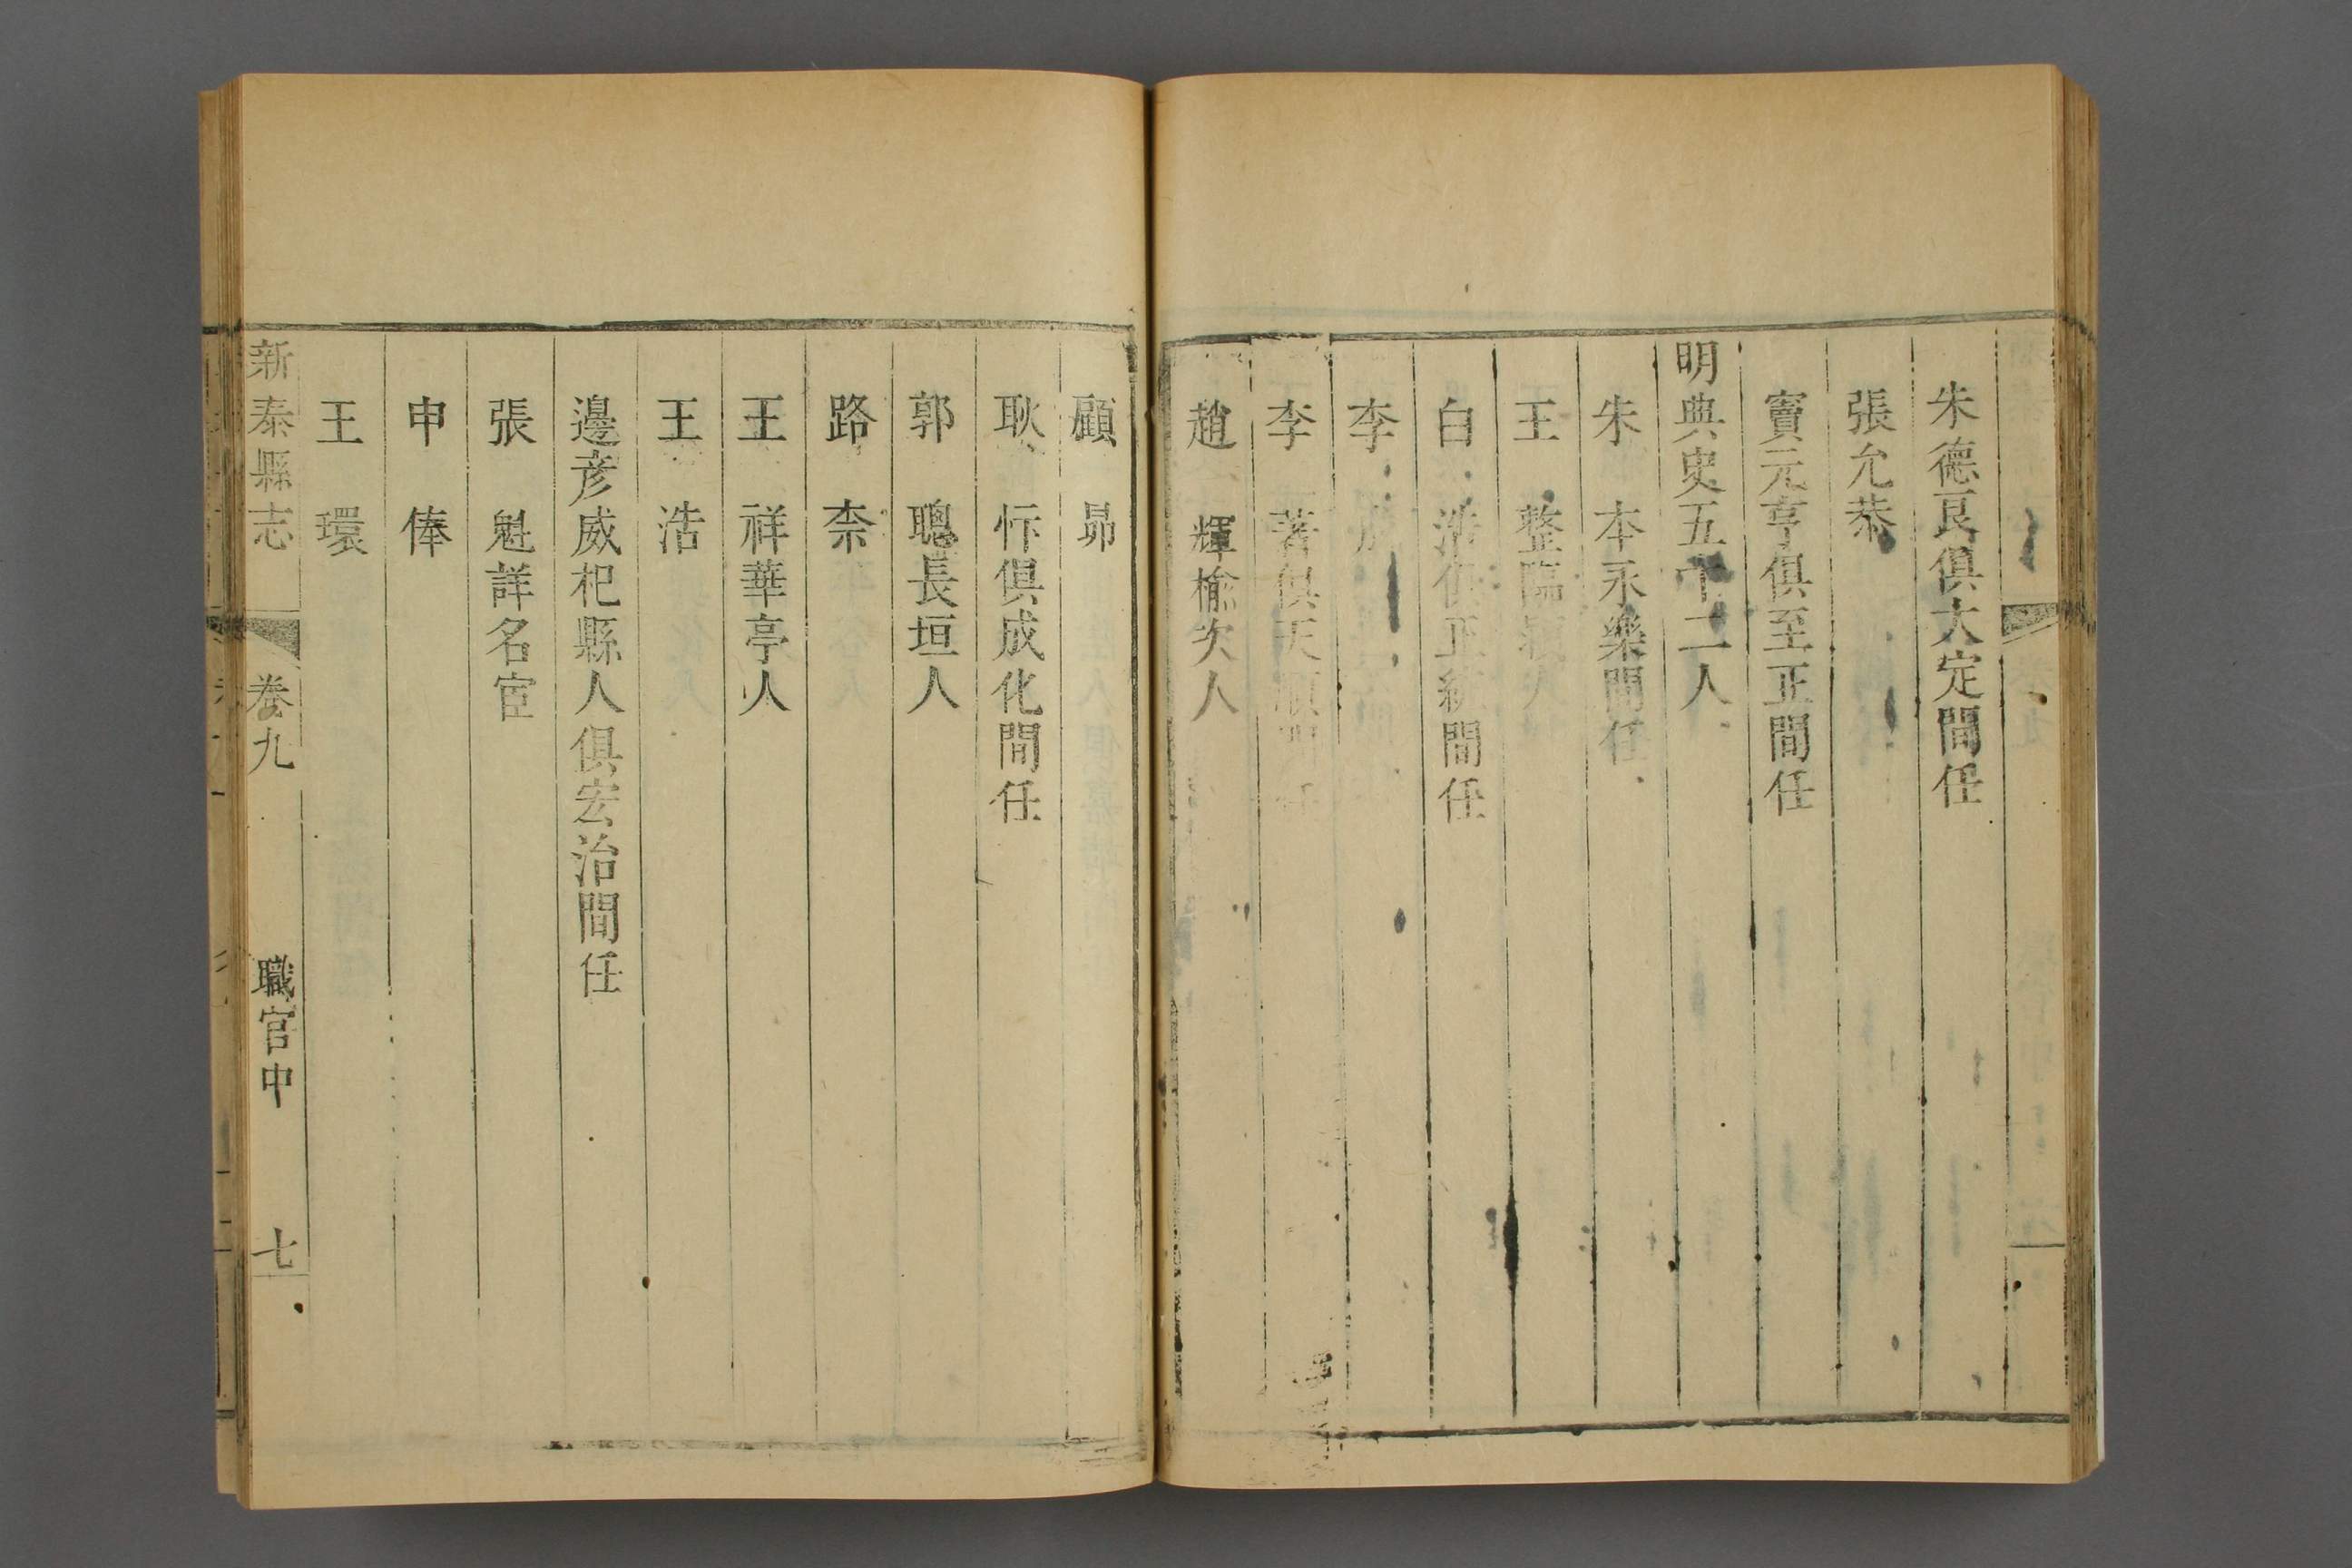 朱德良俱大定間任
張允恭
竇元亨俱至正間任
明典史五十二人
朱　本永樂間任
王　整臨潁人
白　浩俱正統間任
李
李　著俱天順間任
趙　輝榆次人
顧　昴
耿　忭俱成化間任
郭　聰長垣人
路　柰
王　祥華亭人
王　浩
邊彥威杞縣人俱宏治間任
張　魁詳名宦
申　俸
王　環
新泰縣志　卷九　職官中　七